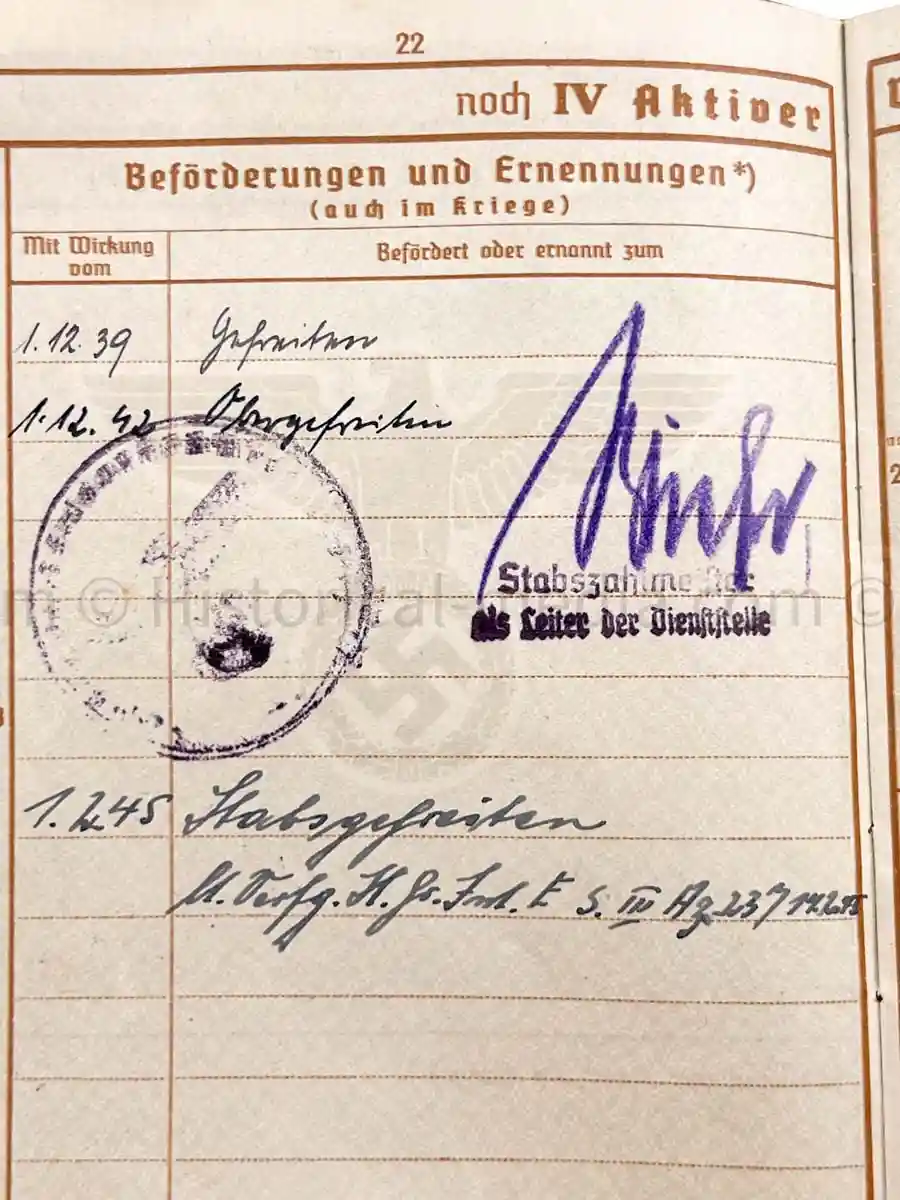 22
noch IV Aktiver
Beförderungen und Ernennungen*)
(auch im Kriege)
Mit Wirkung vom
Befördert oder ernannt zum
1.12.39 Gefreiten
1.12.42 Obergefreiten
Stabszahlmeister
als Leiter der Dienststelle
© Historical-
1.2.45 Stabsgefreiten
lt. Verfg. H. Gr. Int. E S. IV Az. 237